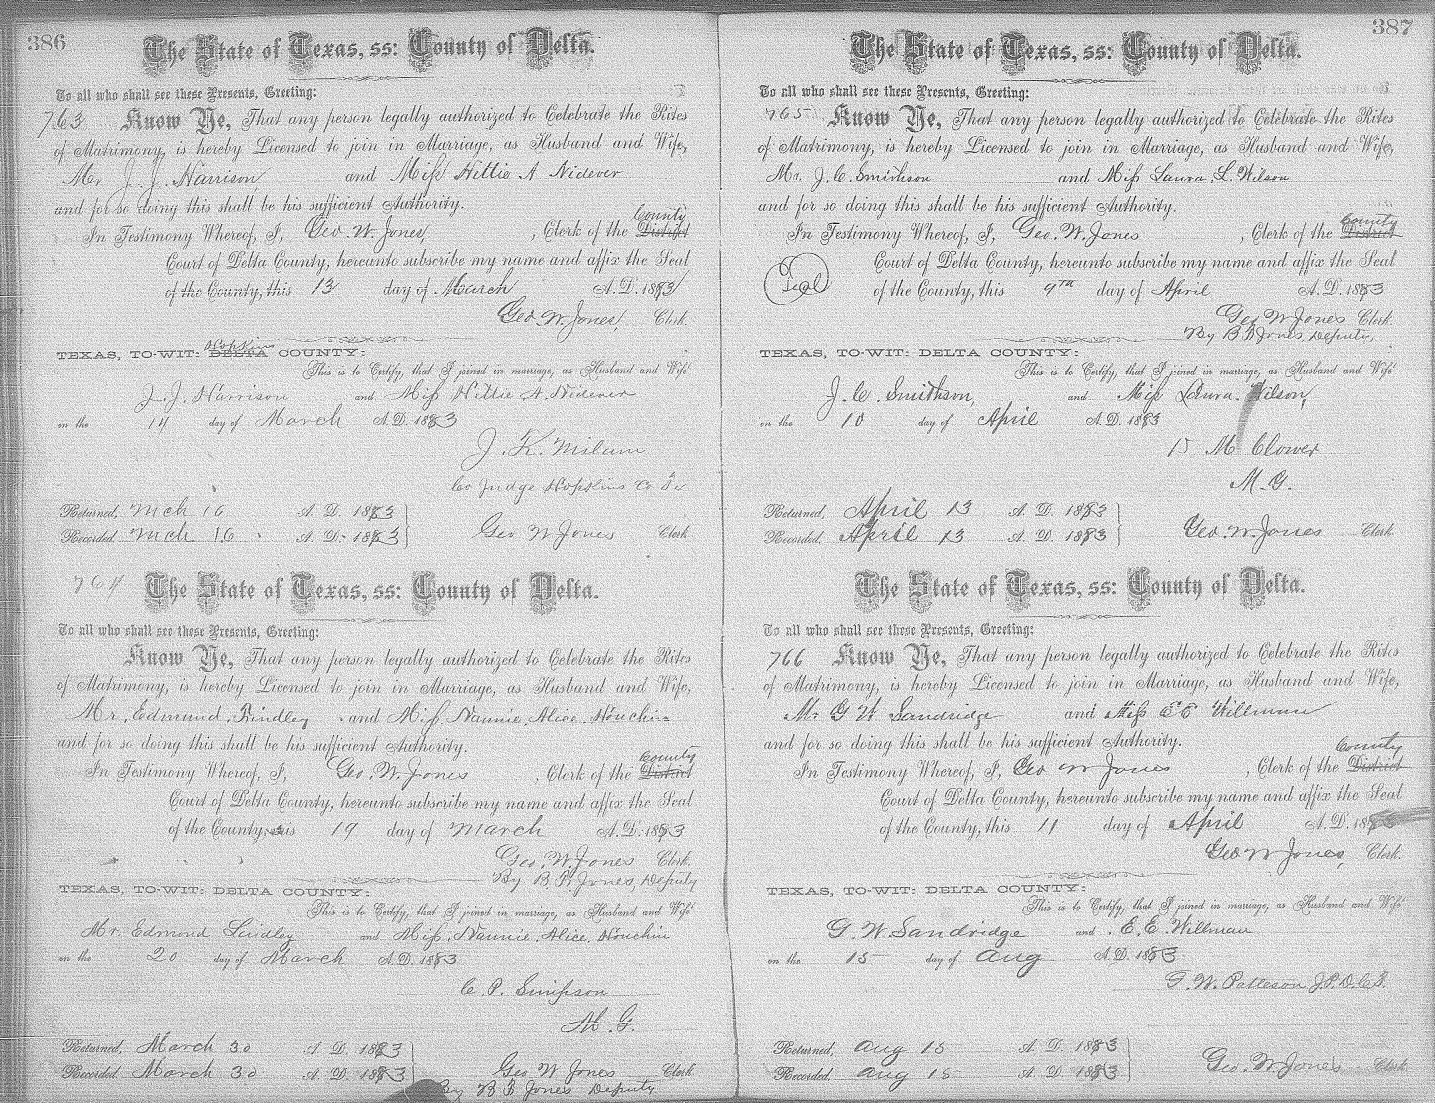 386
The State of Texas, ss: County of Delta.
To all who shall see these Presents, Greeting:
763 Know Ye, That any person legally authorized to Celebrate the Rites
of Matrimony, is hereby Licensed to join in Marriage, as Husband and Wife,
Mr J. J. Harrison, and Miss Hittie A Nidever
and for so doing this shall be his sufficient Authority.
County
In Testimony Whereof, I, Geo. W. Jones, , Clerk of the District
Court of Delta County, hereunto subscribe my name and affix the Seal
of the County, this 13 day of March A. D. 1883
Geo. W. Jones, Clerk.
Hopkins
TEXAS, TO-WIT: DELTA COUNTY:
This is to Certify, that I joined in marriage, as Husband and Wife
J. J. Harrison and Miss Hittie A. Nidever
on the 14 day of March A. D. 1883
J. K. Milam
Co Judge Hopkins Co Tx
Returned, Mch 16 A. D. 1883
Recorded, Mch 16 A. D. 1883 Geo W Jones Clerk
764 The State of Texas, ss: County of Delta.
To all who shall see these Presents, Greeting:
Know Ye, That any person legally authorized to Celebrate the Rites
of Matrimony, is hereby Licensed to join in Marriage, as Husband and Wife,
Mr. Edmund Findley and Miss Nannie Alice Houchin
and for so doing this shall be his sufficient Authority.
County
In Testimony Whereof, I, Geo. W. Jones , Clerk of the District
Court of Delta County, hereunto subscribe my name and affix the Seal
of the County, this 19 day of March A. D. 1883
Geo. W. Jones Clerk.
By B. B. Jones, Deputy
TEXAS, TO-WIT: DELTA COUNTY:
This is to Certify, that I joined in marriage, as Husband and Wife
Mr. Edmond Lindley and Miss Nannie Alice Houchin
on the 20 day of March A. D. 1883
C. P. Simpson
M. G.
Returned, March 30 A. D. 1883
Recorded, March 30 A. D. 1883 Geo W Jones Clerk
By B B Jones Deputy
387
The State of Texas, ss: County of Delta.
To all who shall see these Presents, Greeting:
765 Know Ye, That any person legally authorized to Celebrate the Rites
of Matrimony, is hereby Licensed to join in Marriage, as Husband and Wife,
Mr. J. C. Smithson and Miss Laura L. Wilson
and for so doing this shall be his sufficient Authority.
County
In Testimony Whereof, I, Geo. W. Jones , Clerk of the District
Court of Delta County, hereunto subscribe my name and affix the Seal
Seal of the County, this 9th day of April A. D. 1883
Geo W Jones Clerk.
By B B Jones, Deputy,
TEXAS, TO-WIT: DELTA COUNTY:
This is to Certify, that I joined in marriage, as Husband and Wife
J. C. Smithson, and Miss Laura Wilson,
on the 10 day of April A. D. 1883
M Clower
M. G.
Returned, April 13 A. D. 1883
Recorded, April 13 A. D. 1883 Geo. W. Jones Clerk
The State of Texas, ss: County of Delta.
To all who shall see these Presents, Greeting:
766 Know Ye, That any person legally authorized to Celebrate the Rites
of Matrimony, is hereby Licensed to join in Marriage, as Husband and Wife,
Mr G W Sandridge and Miss E E Willman
and for so doing this shall be his sufficient Authority.
County
In Testimony Whereof, I, Geo W Jones , Clerk of the District
Court of Delta County, hereunto subscribe my name and affix the Seal
of the County, this 11 day of April A. D. 1883
Geo W Jones, Clerk.
TEXAS, TO-WIT: DELTA COUNTY:
This is to Certify, that I joined in marriage, as Husband and Wife
G. W. Sandridge and E. E. Willman
on the 15 day of Aug A. D. 1883
G. W. Patteson J. P. D. C. T.
Returned, Aug 15 A. D. 1883
Recorded, Aug 15 A. D. 1883 Geo. W. Jones Clerk